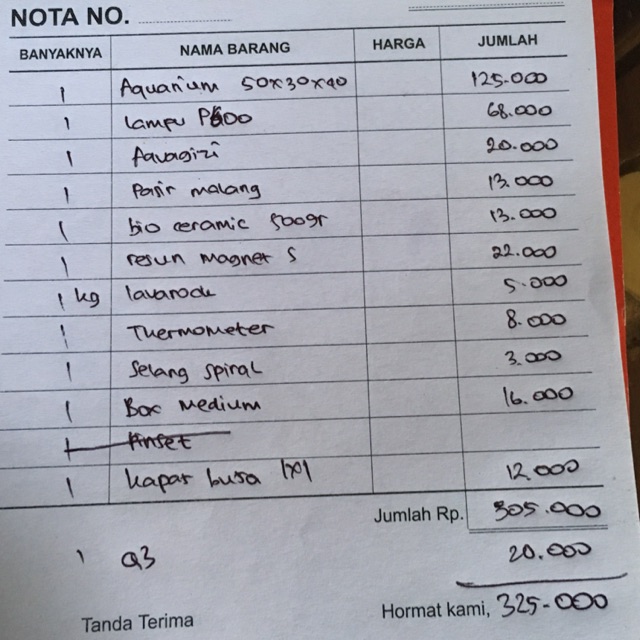 NOTA NO.
BANYAKNYA NAMA BARANG HARGA JUMLAH
1 Aquarium 50x30x40 125.000
1 Lampu P600 68.000
1 Aquagizi 20.000
1 Pasir malang 13.000
1 bio ceramic 500gr 13.000
1 resun magnet S 22.000
1 kg lavarock 5.000
1 Thermometer 8.000
1 Selang spiral 3.000
1 Box Medium 16.000
1 Pinset
1 kapas busa 1x1 12.000
Jumlah Rp. 305.000
1 Q3 20.000
Tanda Terima Hormat kami, 325.000